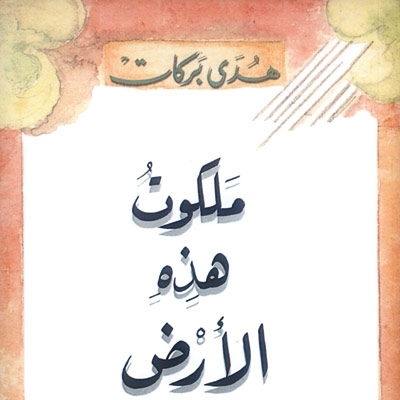 هُدَى بَركات
مَلَكوتُ
هذِهِ
الأَرْض